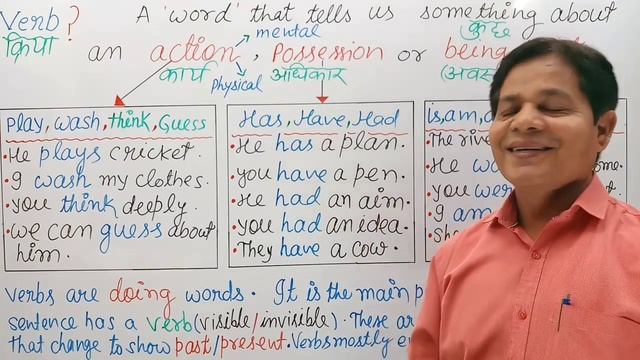 Verb? A 'word' that tells us something about
क्रिया mental कुछ
an action, Possession or being
कार्य Physical अधिकार
Play, wash, think, Guess
• He plays cricket.
• I wash my clothes.
• you think deeply.
• we can guess about
him.
Has, Have, Had
• He has a plan.
• you have a pen.
• He had an aim.
• you had an idea.
• They have a cow.
is, am,
• The
• He
• you
• I am
verbs are doing words. It is the main
sentence has a verb (visible/invisible). These
that change to show past/present. Verbs mostly